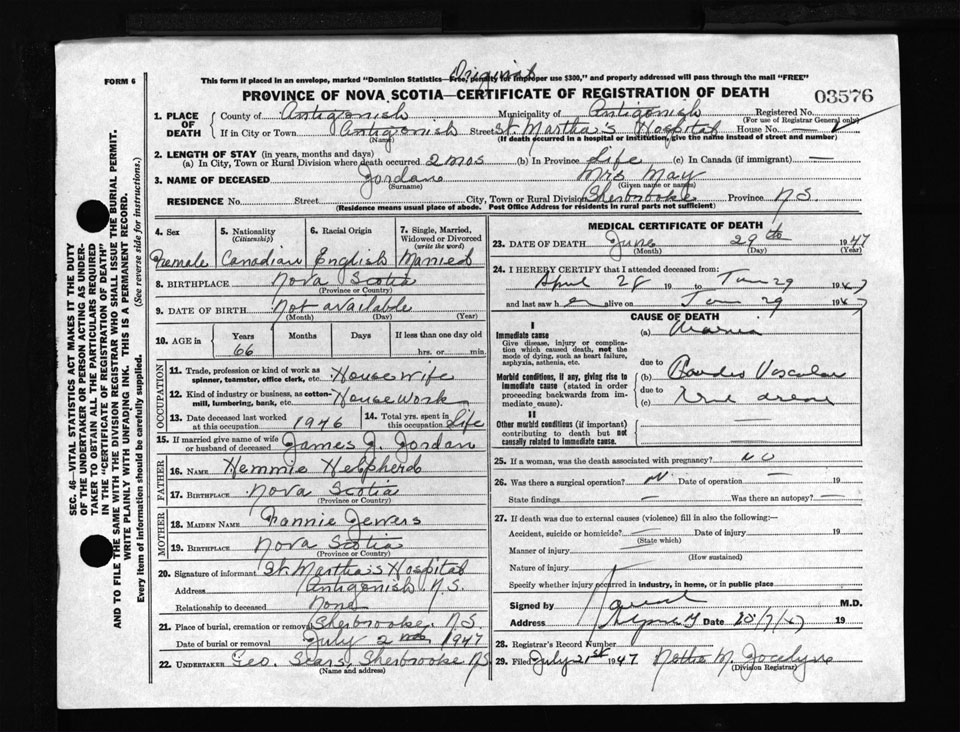 FORM 6
Original
This form if placed in an envelope, marked "Dominion Statistics—Free, penalty for improper use $300," and properly addressed will pass through the mail "FREE"
PROVINCE OF NOVA SCOTIA—CERTIFICATE OF REGISTRATION OF DEATH
03576
1. PLACE OF DEATH
County of Antigonish Municipality of Antigonish Registered No.
(For use of Registrar General only)
If in City or Town Antigonish Street St. Martha's Hospital House No. —
(Name) (If death occurred in a hospital or institution, give the name instead of street and number)
2. LENGTH OF STAY (in years, months and days)
(a) In City, Town or Rural Division where death occurred 2 mos (b) In Province Life (c) In Canada (if immigrant) —
3. NAME OF DECEASED Jordan Mrs May
(Surname) (Given name or names)
RESIDENCE No. Street City, Town or Rural Division Sherbrooke Province N.S.
(Residence means usual place of abode. Post Office Address for residents in rural parts not sufficient)
4. Sex
Female
5. Nationality
(Citizenship)
Canadian
6. Racial Origin
English
7. Single, Married, Widowed or Divorced
(write the word)
Married
8. BIRTHPLACE Nova Scotia
(Province or Country)
9. DATE OF BIRTH Not available
(Month) (Day) (Year)
10. AGE in Years Months Days If less than one day old
66 hrs. or min.
OCCUPATION
11. Trade, profession or kind of work as spinner, teamster, office clerk, etc. House Wife
12. Kind of industry or business, as cotton-mill, lumbering, bank, etc. House Work
13. Date deceased last worked at this occupation 1946
14. Total yrs. spent in this occupation Life
15. If married give name of wife or husband of deceased James J. Jordan
FATHER
16. NAME Hemmie
17. BIRTHPLACE Nova Scotia
(Province or Country)
MOTHER
18. MAIDEN NAME Fannie Jewers
19. BIRTHPLACE Nova Scotia
(Province or Country)
20. Signature of informant St. Martha's Hospital
Address Antigonish N.S.
Relationship to deceased None
21. Place of burial, cremation or removal Sherbrooke. N.S.
Date of burial or removal July 2nd 1947
22. UNDERTAKER Geo. Sears, Sherbrooke N.S.
(Name and address)
MEDICAL CERTIFICATE OF DEATH
23. DATE OF DEATH June 29th 1947
(Month) (Day) (Year)
24. I HEREBY CERTIFY that I attended deceased from:
April 28 19 to Jun 29 1947
and last saw her alive on Jun 29 1947
CAUSE OF DEATH
I
Immediate cause
Give disease, injury or complication which caused death, not the mode of dying, such as heart failure, asphyxia, asthenia, etc.
(a)
due to
Morbid conditions, if any, giving rise to immediate cause (stated in order proceeding backwards from immediate cause).
(b) Vascular
due to
(c)
II
Other morbid conditions (if important) contributing to death but not causally related to immediate cause.
25. If a woman, was the death associated with pregnancy? NO
26. Was there a surgical operation? No Date of operation — 19
State findings — Was there an autopsy? —
27. If death was due to external causes (violence) fill in also the following:—
Accident, suicide or homicide? Date of injury 19
(State which)
Manner of injury
(How sustained)
Nature of injury
Specify whether injury occurred in industry, in home, or in public place
Signed by M.D.
Address Date 10/7/47 19
28. Registrar's Record Number
29. Filed July 21st 1947
(Division Registrar)
SEC. 46—VITAL STATISTICS ACT MAKES IT THE DUTY
OF THE UNDERTAKER OR PERSON ACTING AS UNDER-
TAKER TO OBTAIN ALL THE PARTICULARS REQUIRED
IN THE "CERTIFICATE OF REGISTRATION OF DEATH"
AND TO FILE THE SAME WITH THE DIVISION REGISTRAR WHO SHALL ISSUE THE BURIAL PERMIT.
WRITE PLAINLY WITH UNFADING INK. THIS IS A PERMANENT RECORD.
Every item of information should be carefully supplied. (See reverse side for instructions.)